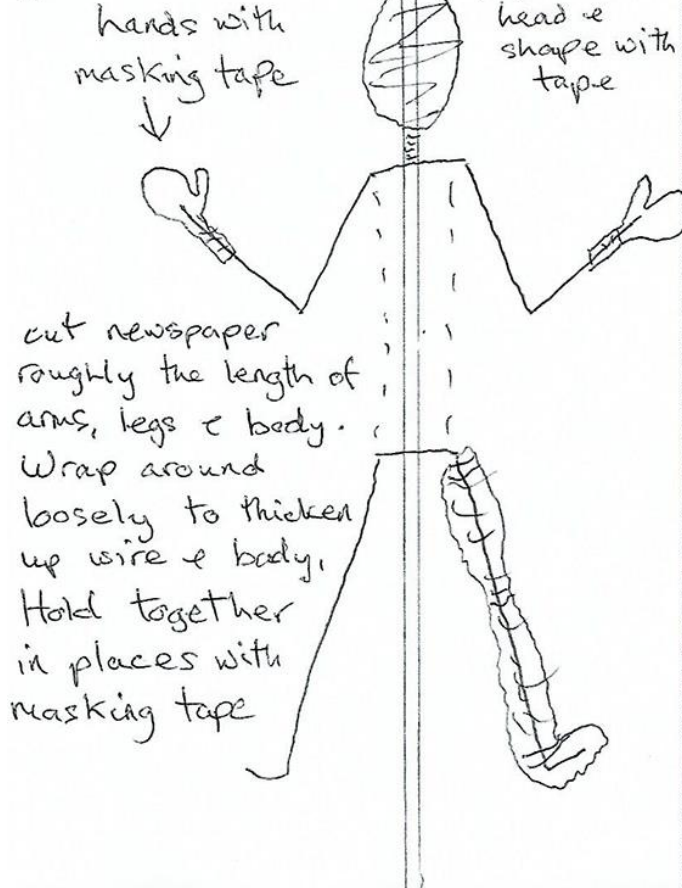 hands with
masking tape
head &
shape with
tape
cut newspaper
roughly the length of
arms, legs & body.
Wrap around
loosely to thicken
up wire & body,
Hold together
in places with
masking tape